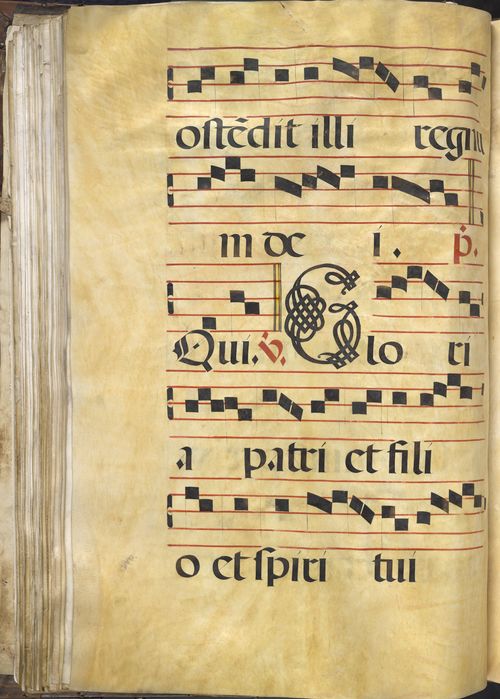 ostēdit illi regnū
m de i. p.
Qui. v. Glo ri
a patri et fili
o et spiri tui